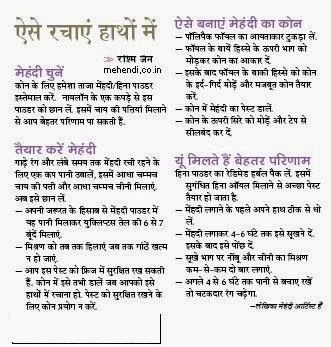 ऐसे रचाएं हाथों में
रश्मि जैन
mehendi.co.in
मेहंदी चुनें
कोन के लिए हमेशा ताजा मेहंदी/हिना पाउडर
इस्तेमाल करें। नायलॉन के एक कपड़े से इस
पाउडर को छान लें। इसमें चाय की पत्तियां मिलाने
से आप बेहतर परिणाम पा सकती हैं।
तैयार करें मेहंदी
गाढ़े रंग और लंबे समय तक मेहंदी रची रहने के
लिए एक कप पानी उबालें, इसमें आधा चम्मच
चाय की पत्ती और आधा चम्मच चीनी मिलाएं।
अब इसे छान लें।
— अपनी जरूरत के हिसाब से मेहंदी पाउडर में
यह पानी मिलाकर युक्लिप्टस तेल की 6 से 7
बूंदें मिलाएं।
— मिश्रण को तब तक हिलाएं जब तक गांठें खत्म
न हो जाएं।
— आप इस पेस्ट को फ्रिज में सुरक्षित रख सकती
हैं। कोन में इसे तभी डालें जब आपको इसे
हाथों में रचाना हो। पेस्ट को सुरक्षित रखने के
लिए कोन प्रयोग न करें।
ऐसे बनाएं मेहंदी का कोन
— पॉलिपैक फॉयल का आयताकार टुकड़ा लें।
— फॉयल के बायें हिस्से के ऊपरी भाग को
मोड़कर कोन का आकार दें।
— इसके बाद फॉयल के बाकी हिस्से को कोन
के इर्द-गिर्द मोड़ें और मजबूत कोन तैयार
करें।
— कोन में मेहंदी का पेस्ट डालें।
— कोन के ऊपरी सिरे को मोड़ें और टेप से
सीलबंद कर दें।
यूं मिलते हैं बेहतर परिणाम
हिना पाउडर का रेडिमेड हर्बल पैक लें। इसमें
सुगंधित हिना ऑयल मिलाने से अच्छा पेस्ट
तैयार हो जाता है।
— मेहंदी लगाने के पहले अपने हाथ ठीक से धो
लें।
— मेहंदी लगाकर 4-6 घंटे तक इसे सूखने दें।
इसके बाद इसे पोंछ दें।
— सूखे भाग पर नींबू और चीनी का मिश्रण
कम-से-कम दो बार लगाएं।
— अगले 4 से 6 घंटे तक पानी से बचाए रखें
तो चटकदार रंग चढ़ेगा।
—लेखिका मेहंदी आर्टिस्ट हैं